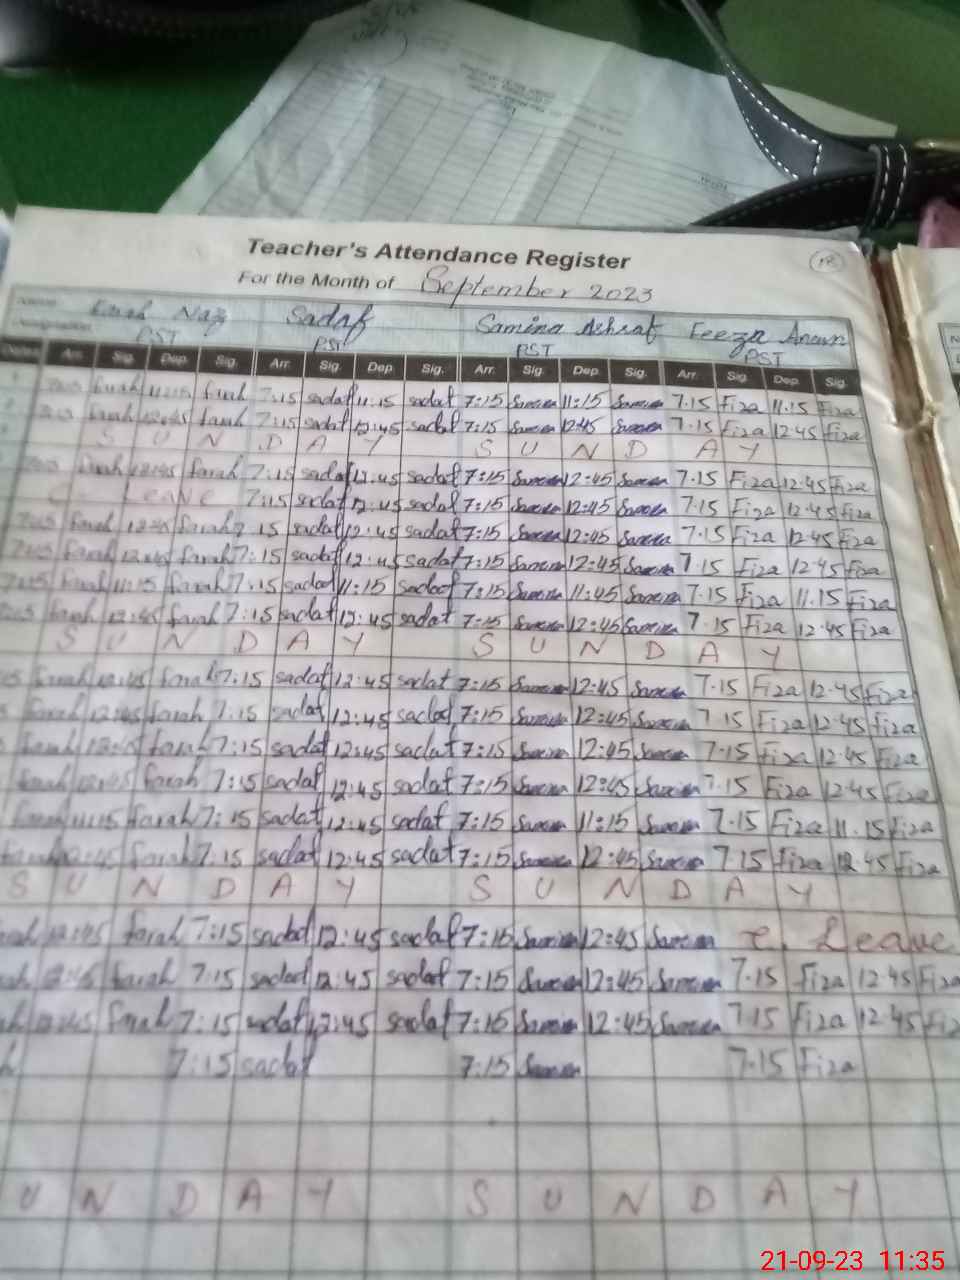 Teacher's Attendance Register
For the Month of September 2023
Farah Naz Sadaf Samina Ashraf Feeza
PST PST PST PST
Arr. Sig. Dep. Sig. Arr. Sig. Dep. Sig. Arr. Sig. Dep. Sig. Arr. Sig. Dep. Sig.
farah 11:15 farah 7:15 sadaf 11:15 sadaf 7:15 Samina 11:15 Samina 7.15 Fiza 11.15 Fiza
farah 12:45 farah 7:15 sadaf 12:45 sadaf 7:15 Samina 12:45 Samina 7.15 Fiza 12.45 Fiza
S U N D A Y S U N D A Y
farah 12:45 farah 7:15 sadaf 12:45 sadaf 7:15 Samina 12:45 Samina 7.15 Fiza 12.45 Fiza
Leave 7:15 sadaf 12:45 sadaf 7:15 Samina 12:45 Samina 7.15 Fiza 12.45 Fiza
farah 12:45 farah 7:15 sadaf 12:45 sadaf 7:15 Samina 12:45 Samina 7.15 Fiza 12.45 Fiza
farah 12:45 farah 7:15 sadaf 12:45 sadaf 7:15 Samina 12:45 Samina 7.15 Fiza 12.45 Fiza
farah 11:15 farah 7:15 sadaf 11:15 sadaf 7:15 Samina 11:45 Samina 7.15 Fiza 11.15 Fiza
farah 12:45 farah 7:15 sadaf 12:45 sadaf 7:15 Samina 12:45 Samina 7.15 Fiza 12.45 Fiza
S U N D A Y S U N D A Y
farah 12:45 farah 7:15 sadaf 12:45 sadaf 7:15 Samina 12:45 Samina 7.15 Fiza 12.45 Fiza
farah 12:45 farah 7:15 sadaf 12:45 sadaf 7:15 Samina 12:45 Samina 7.15 Fiza 12.45 Fiza
farah 12:45 farah 7:15 sadaf 12:45 sadaf 7:15 Samina 12:45 Samina 7.15 Fiza 12.45 Fiza
farah 12:45 farah 7:15 sadaf 12:45 sadaf 7:15 Samina 12:45 Samina 7.15 Fiza 12.45 Fiza
farah 11:15 farah 7:15 sadaf 12:45 sadaf 7:15 Samina 11:15 Samina 7.15 Fiza 11.15 Fiza
farah 12:45 farah 7:15 sadaf 12:45 sadaf 7:15 Samina 12:45 Samina 7.15 Fiza 12.45 Fiza
S U N D A Y S U N D A Y
12:45 farah 7:15 sadaf 12:45 sadaf 7:15 Samina 12:45 Samina Leave
12:45 farah 7:15 sadaf 12:45 sadaf 7:15 Samina 12:45 Samina 7.15 Fiza 12.45 Fiza
12:45 farah 7:15 sadaf 12:45 sadaf 7:15 Samina 12:45 Samina 7.15 Fiza 12.45
7:15 sadaf 7:15 Samina 7.15 Fiza
U N D A Y S U N D A Y
21-09-23 11:35